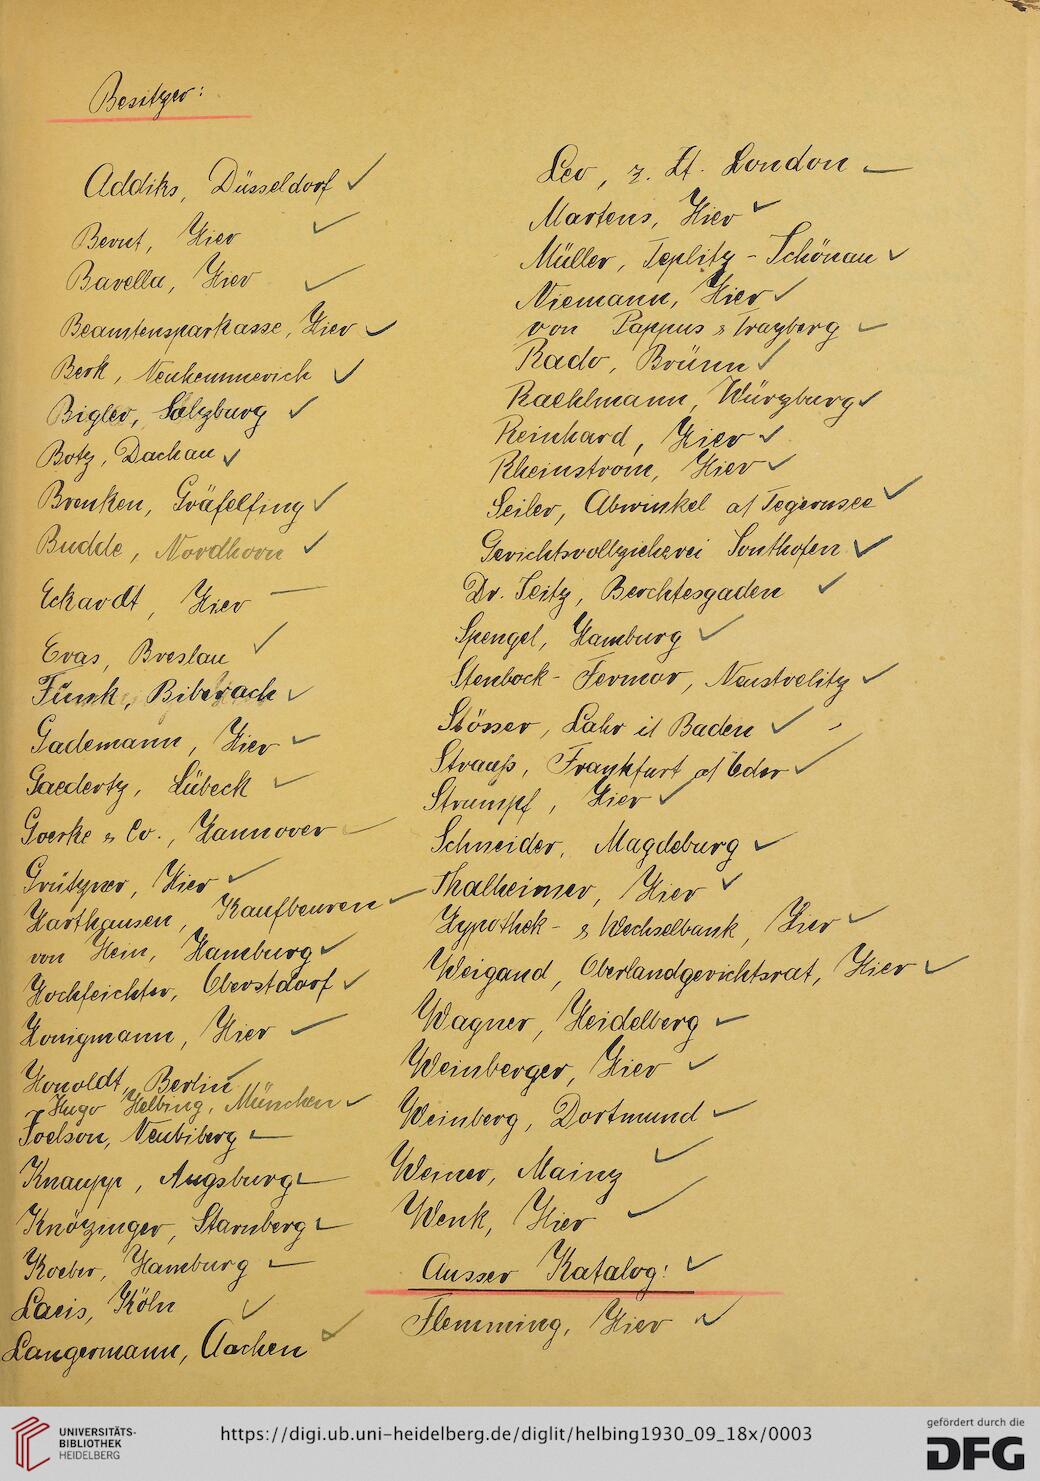 Besitzer:
Addiks, Düsseldorf
Bernt, Hier
Bavella, Hier
Beamtensparkasse, Hier
Berk, Neukemmerich
Bigler, Salzburg
Botz, Dachau
Brenken, Gräfelfing
Budde, Nordhorn
Eckardt, Hier
Evas, Breslau
Funk, Biberach
Gademann, Hier
Gaedertz, Lübeck
Goerke & Co., Hannover
Grützner, Hier
Harthausen, Kaufbeuren
von Hein, Hamburg
Hochfeichter, Oberstdorf
Honigmann, Hier
Honoldt, Berlin
Hugo Helbing, München
Joelson, Neubiberg
Knaupp, Augsburg
Knözinger, Starnberg
Koeber, Hamburg
Laeis, Köln
Langermann, Aachen
Leo, z. Zt. London
Martens, Hier
Müller, Teplitz-Schönau
Niemann, Hier
von Pappus & Trazberg
Rado, Brünn
Raehlmann, Würzburg
Reinhard, Hier
Rheinstrom, Hier
Seiler, Abwinkel a/Tegernsee
Gerichtsvollzieherei Sonthofen
Dr. Seitz, Berchtesgaden
Spengel, Hamburg
Stenbock-Fermor, Neustrelitz
Stösser, Lahr i/ Baden
Strauß, Frankfurt a/ Oder
Strumpf, Hier
Schneider, Magdeburg
Thalheimer, Hier
Hypothek- & Wechselbank, Hier
Weigand, Oberlandgerichtsrat, Hier
Wagner, Heidelberg
Weinberger, Hier
Weinberg, Dortmund
Weiner, Mainz
Wenk, Hier
Ausser Katalog:
Flemming, Hier
UNIVERSITÄTS-
BIBLIOTHEK
HEIDELBERG
https://digi.ub.uni-heidelberg.de/diglit/helbing1930_09_18x/0003
gefördert durch die
DFG